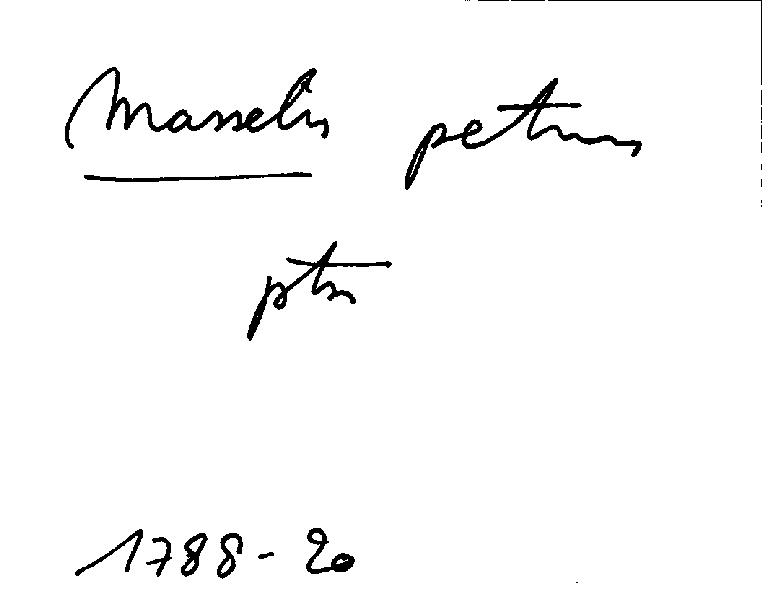 Masselis petrus
ptr
1788-20